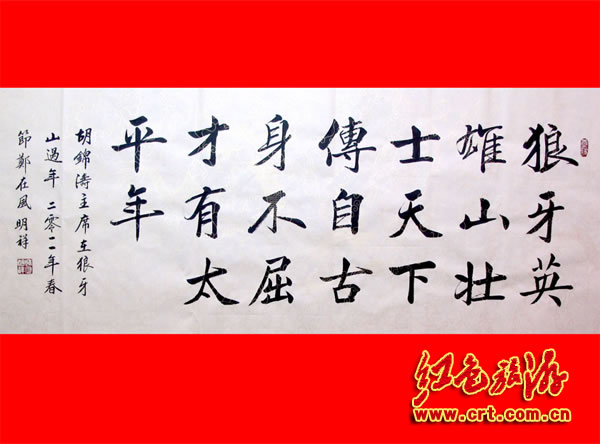 狼牙英
雄山壮
士天下
傳自古
身不屈
才有太
平年
胡錦涛主席在狼牙
山過年 二零一一年春
節鄭在風 明祥
红色旅游
www.crt.com.cn